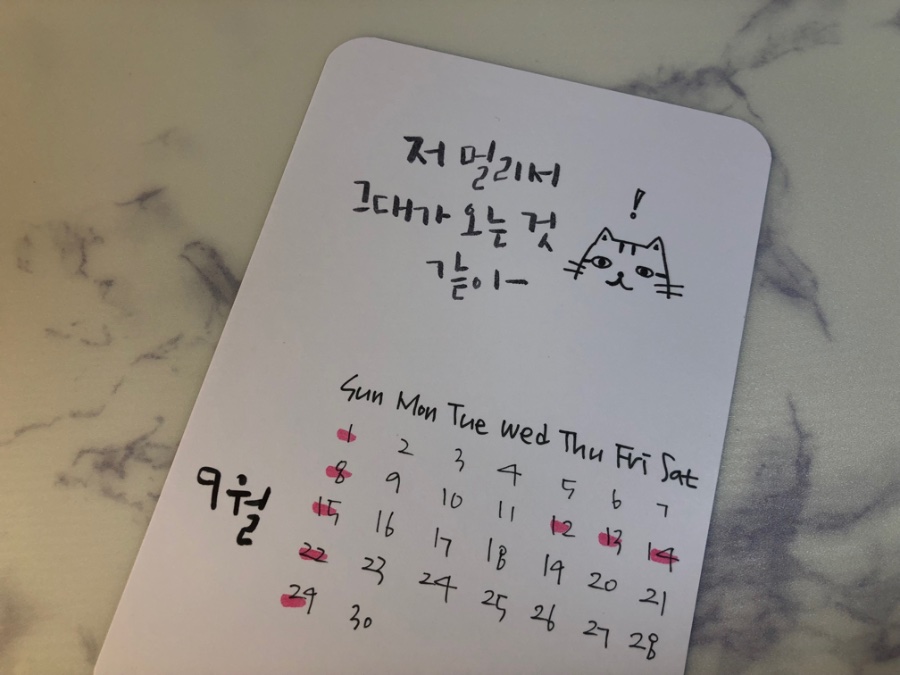 저 멀리서
그대가 오는 것
같아-
!
Sun Mon Tue Wed Thu Fri Sat
1 2 3 4 5 6 7
8 9 10 11 12 13 14
9월
15 16 17 18 19 20 21
22 23 24 25 26 27 28
29 30